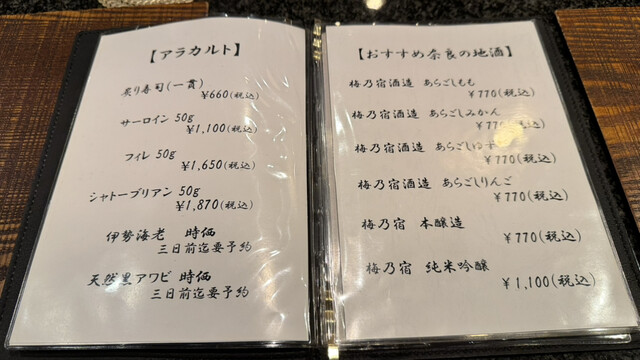 【アラカルト】
炙り寿司(一貫)
¥660(税込)
サーロイン 50g
¥1,100(税込)
フィレ 50g
¥1,650(税込)
シャトーブリアン 50g
¥1,870(税込)
伊勢海老 時価
三日前迄要予約
天然黒アワビ 時価
三日前迄要予約
【おすすめ奈良の地酒】
梅乃宿酒造 あらごしもも
¥770(税込)
梅乃宿酒造 あらごしみかん
¥770(税込)
梅乃宿酒造 あらごしゆず
¥770(税込)
梅乃宿酒造 あらごしりんご
¥770(税込)
梅乃宿 本醸造
¥770(税込)
梅乃宿 純米吟醸
¥1,100(税込)